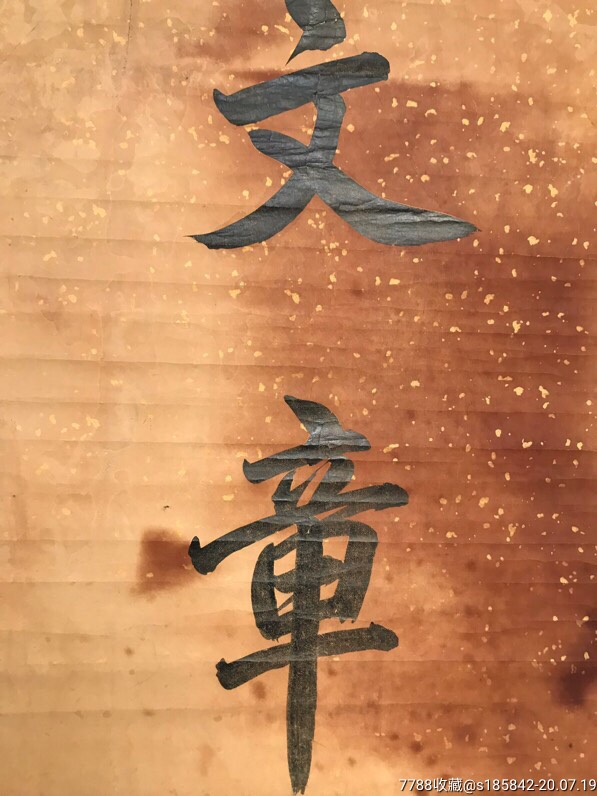 文
章
7788收藏@s185842-20.07.19